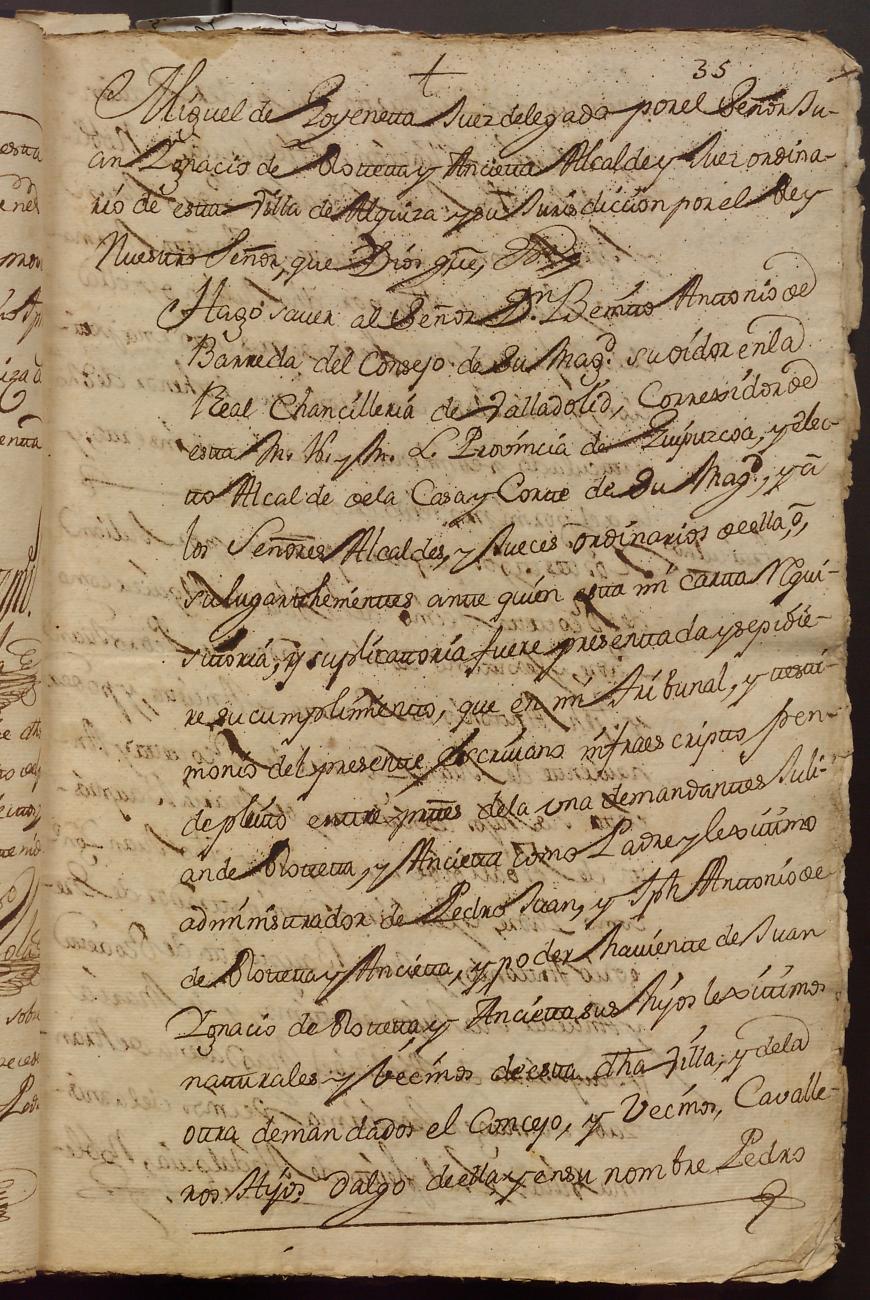 + 35
Miguel de Goyenetta Juez delegado por el Señor Ju-
an Ygnacio de Olotetta y Ancietta Alcalde y Juez ordina-
rio de estta Villa de Alquiza y su Jurisdiccion por el Rey
Nuesttro Señor, que Dios gūe,
Hago saver al Señor Dn. Benitto Anttonio de
Barreda del Consejo de Su Magd. su oidor en la
Real Chancilleria de Valladolid, Correxidor de
estta M. N. y M. L. Provincia de Guipuzcoa, y elec-
tto Alcalde de la Casa y Cortte de Su Magd., y â
los Señores Alcaldes, y Jueces ordinarios de ella, ô,
sulugarthenienttes antte quien estta mi cartta requi-
sittoria, y suplicattoria fuere presenttada y se pidie-
re su cumplimientto, que en mi Tribunal, y testti-
monio del presentte Escrivano infraescripto pen-
de pleitto enttre parttes dela una demandanttes Juli-
an de Olotetta, y Ancietta como Padre y lexittimo
administrador de Pedro Juan, y Jph Anttonio de
de Olotetta y Ancietta, y poder havientte de Juan
Ygnacio de Olotetta, y Ancietta, sus hijos lexittimos
natturales y Vecinos de estta dha Villa, y dela
ottra demandados el Concejo, y Vecinos, Cavalle-
ros Hijos dalgo de ella y en su nombre Pedro